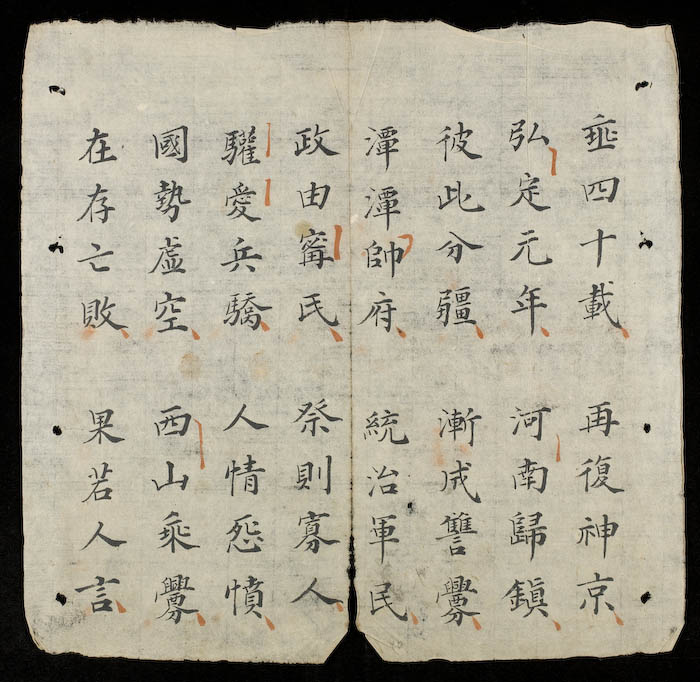 埀四十載 再復神京
弘定元年 河南歸鎮
彼此分疆 漸成讐釁
潭潭帥府 統治軍民
政由甯民 祭則寡人
驩愛兵驕 人情怨憤
國勢虛空 西山乘釁
在存亡敗 果若人言